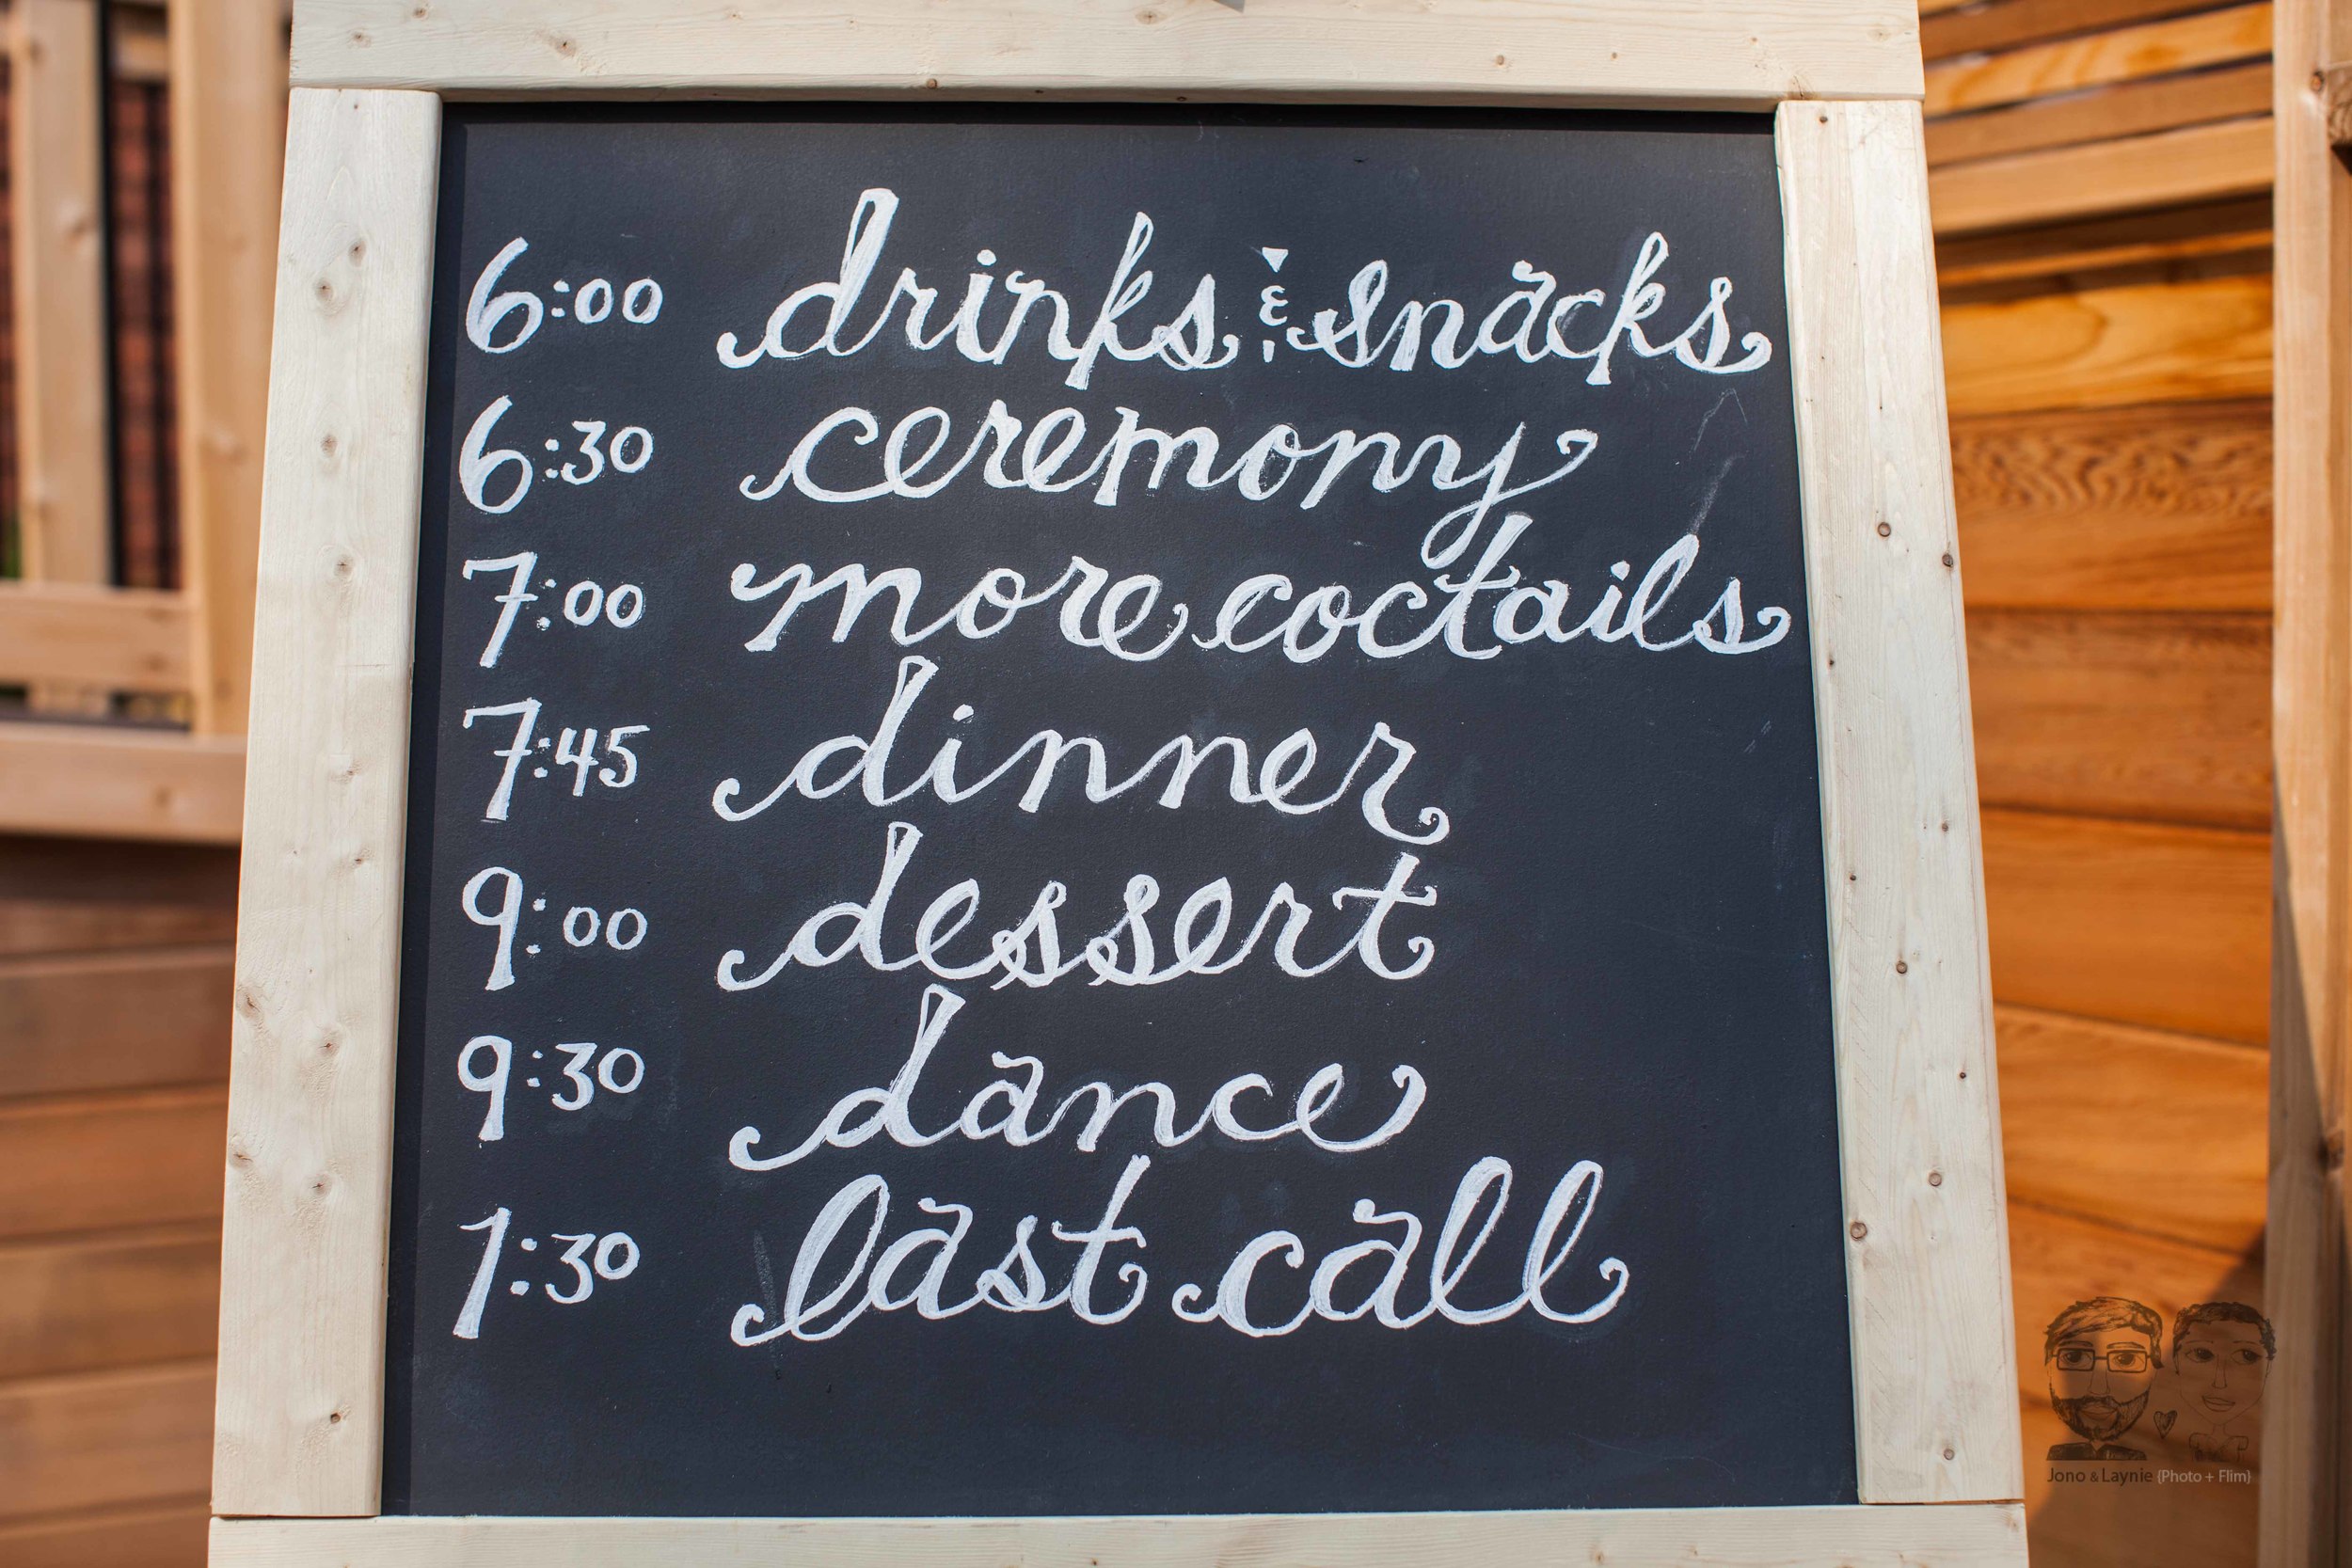 6:00 drinks & snacks
6:30 ceremony
7:00 more coctails
7:45 dinner
9:00 dessert
9:30 dance
1:30 last call
Jono & Laynie {Photo + Flim}